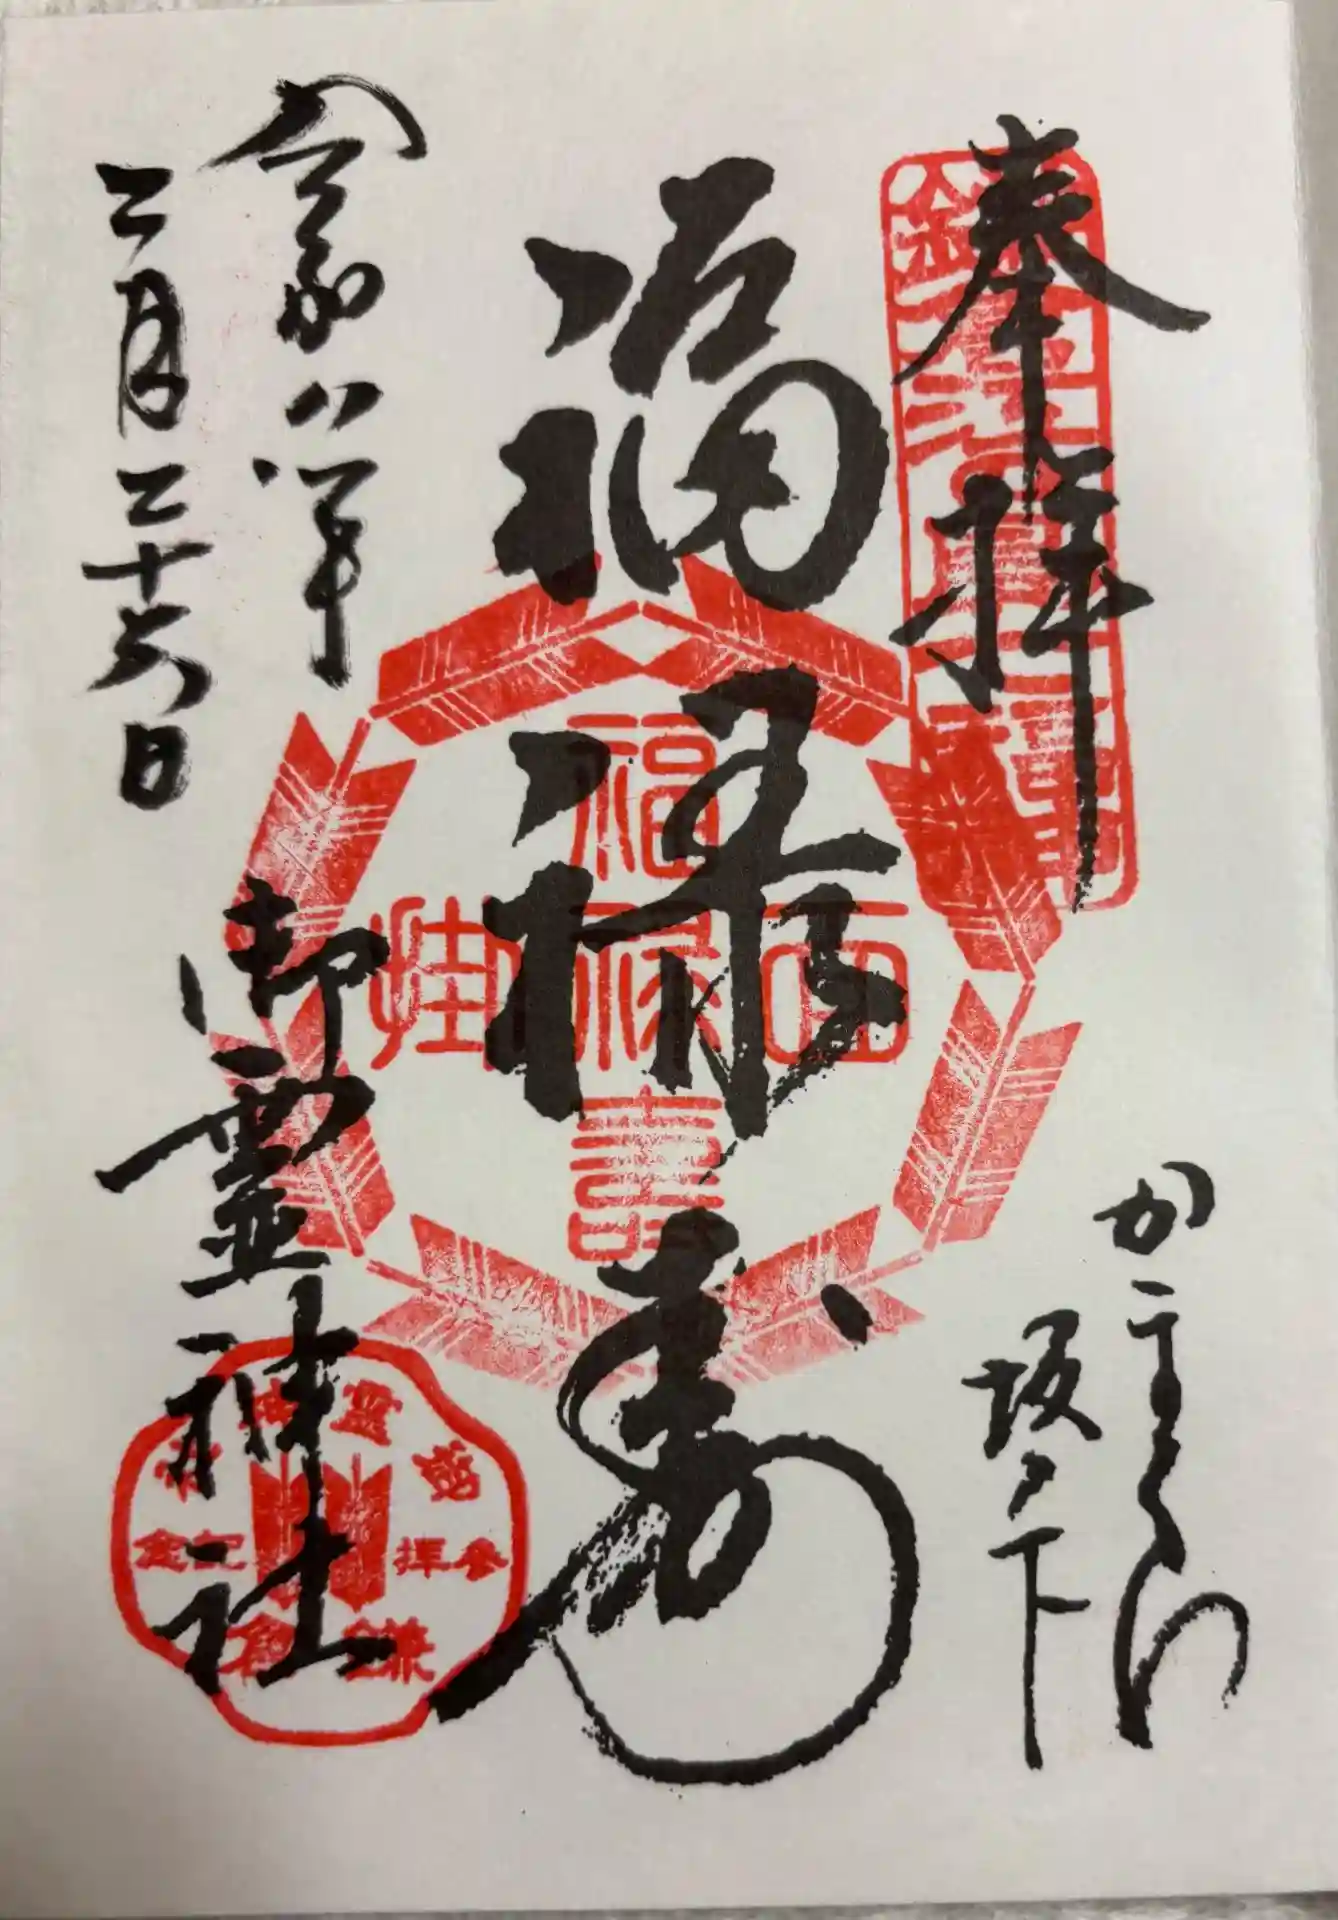 奉拝
かまくら
坂ノ下
福禄寿
令和八年
二月二十六日
御霊神社
福
面 禄 掛
寿
御霊神社
参拝
記念
鎌倉